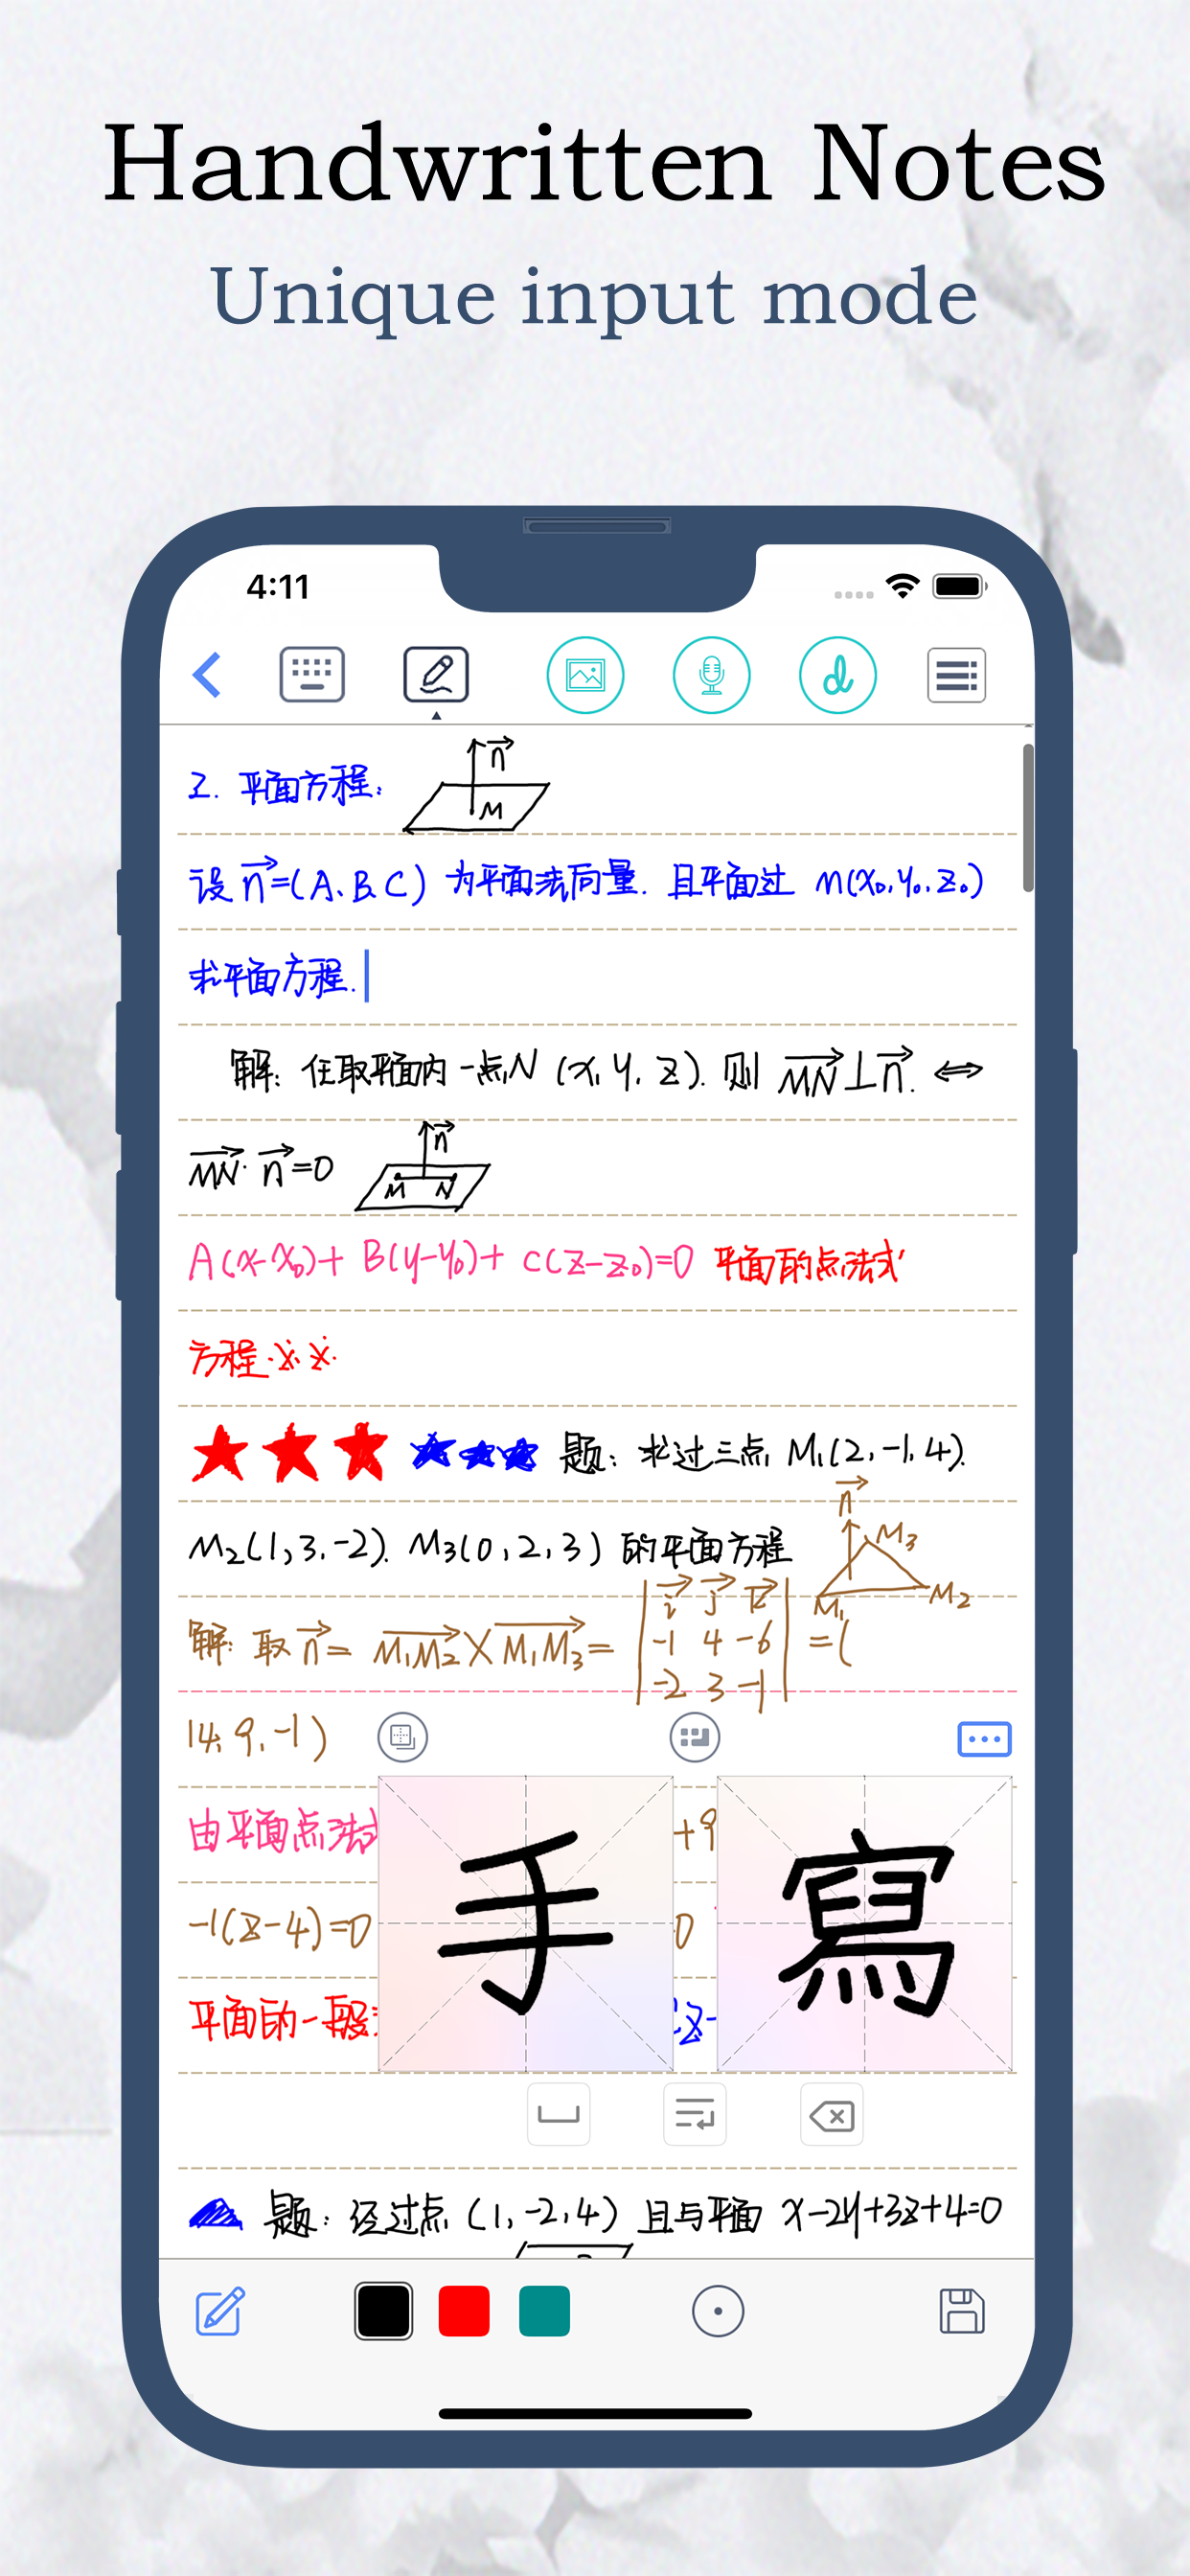 Handwritten Notes
Unique input mode
4:11
2. 平面方程:
n→
M
设 n→=(A、B、C) 为平面法向量. 且平面过 M(x₀,y₀,z₀)
求平面方程.
解: 任取平面内一点N (x, y, z). 则 MN→⊥n→. ⟺
MN→·n→=0
n→
M N
A(x-x₀)+ B(y-y₀)+ C(z-z₀)=0 平面的点法式
方程.※.※.
★★★ ★★★ 题: 求过三点 M₁(2,-1,4).
M₂(1,3,-2). M₃(0,2,3) 的平面方程
n→
M₃
M₁
M₂
解: 取 n→= M₁M₂→×M₁M₃→= | i→ j→ k→ |
| -1 4 -6 | =(
| -2 3 -1 |
14, 9, -1)
由平面点法式 +9
-1(z-4)=0 0
平面的一般 z-
手 寫
题: 经过点 (1,-2,4) 且与平面 x-2y+3z+4=0